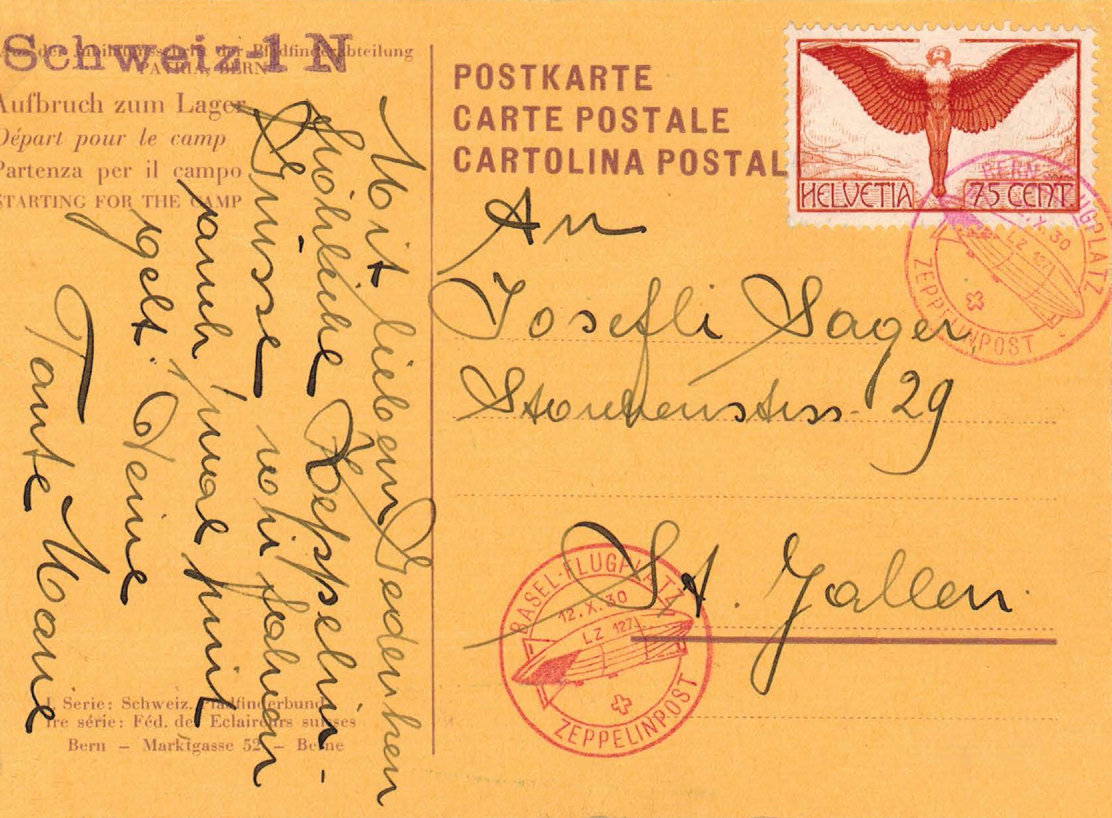 Schweiz-1 N
der Pfadfinderabteilung
PATRIA, BERN
Aufbruch zum Lager
Départ pour le camp
Partenza per il campo
STARTING FOR THE CAMP
Mit liebem Gedenken
fröhliche Zeppelin-
Grüsse – wir fahren
auch 'mal mit
gelt. Deine
Tante Marie
I. Serie: Schweiz. Pfadfinderbund
Ire série: Féd. des Eclaireurs suisses
Bern – Marktgasse 52 – Berne
POSTKARTE
CARTE POSTALE
CARTOLINA POSTAL
HELVETIA 75 CENT
BERN FLUGPLATZ
X. 30
LZ 127
ZEPPELINPOST
An
Josefli Sager,
29
St. Gallen.
BASEL-FLUGPLATZ
12. X. 30
LZ 127
ZEPPELINPOST